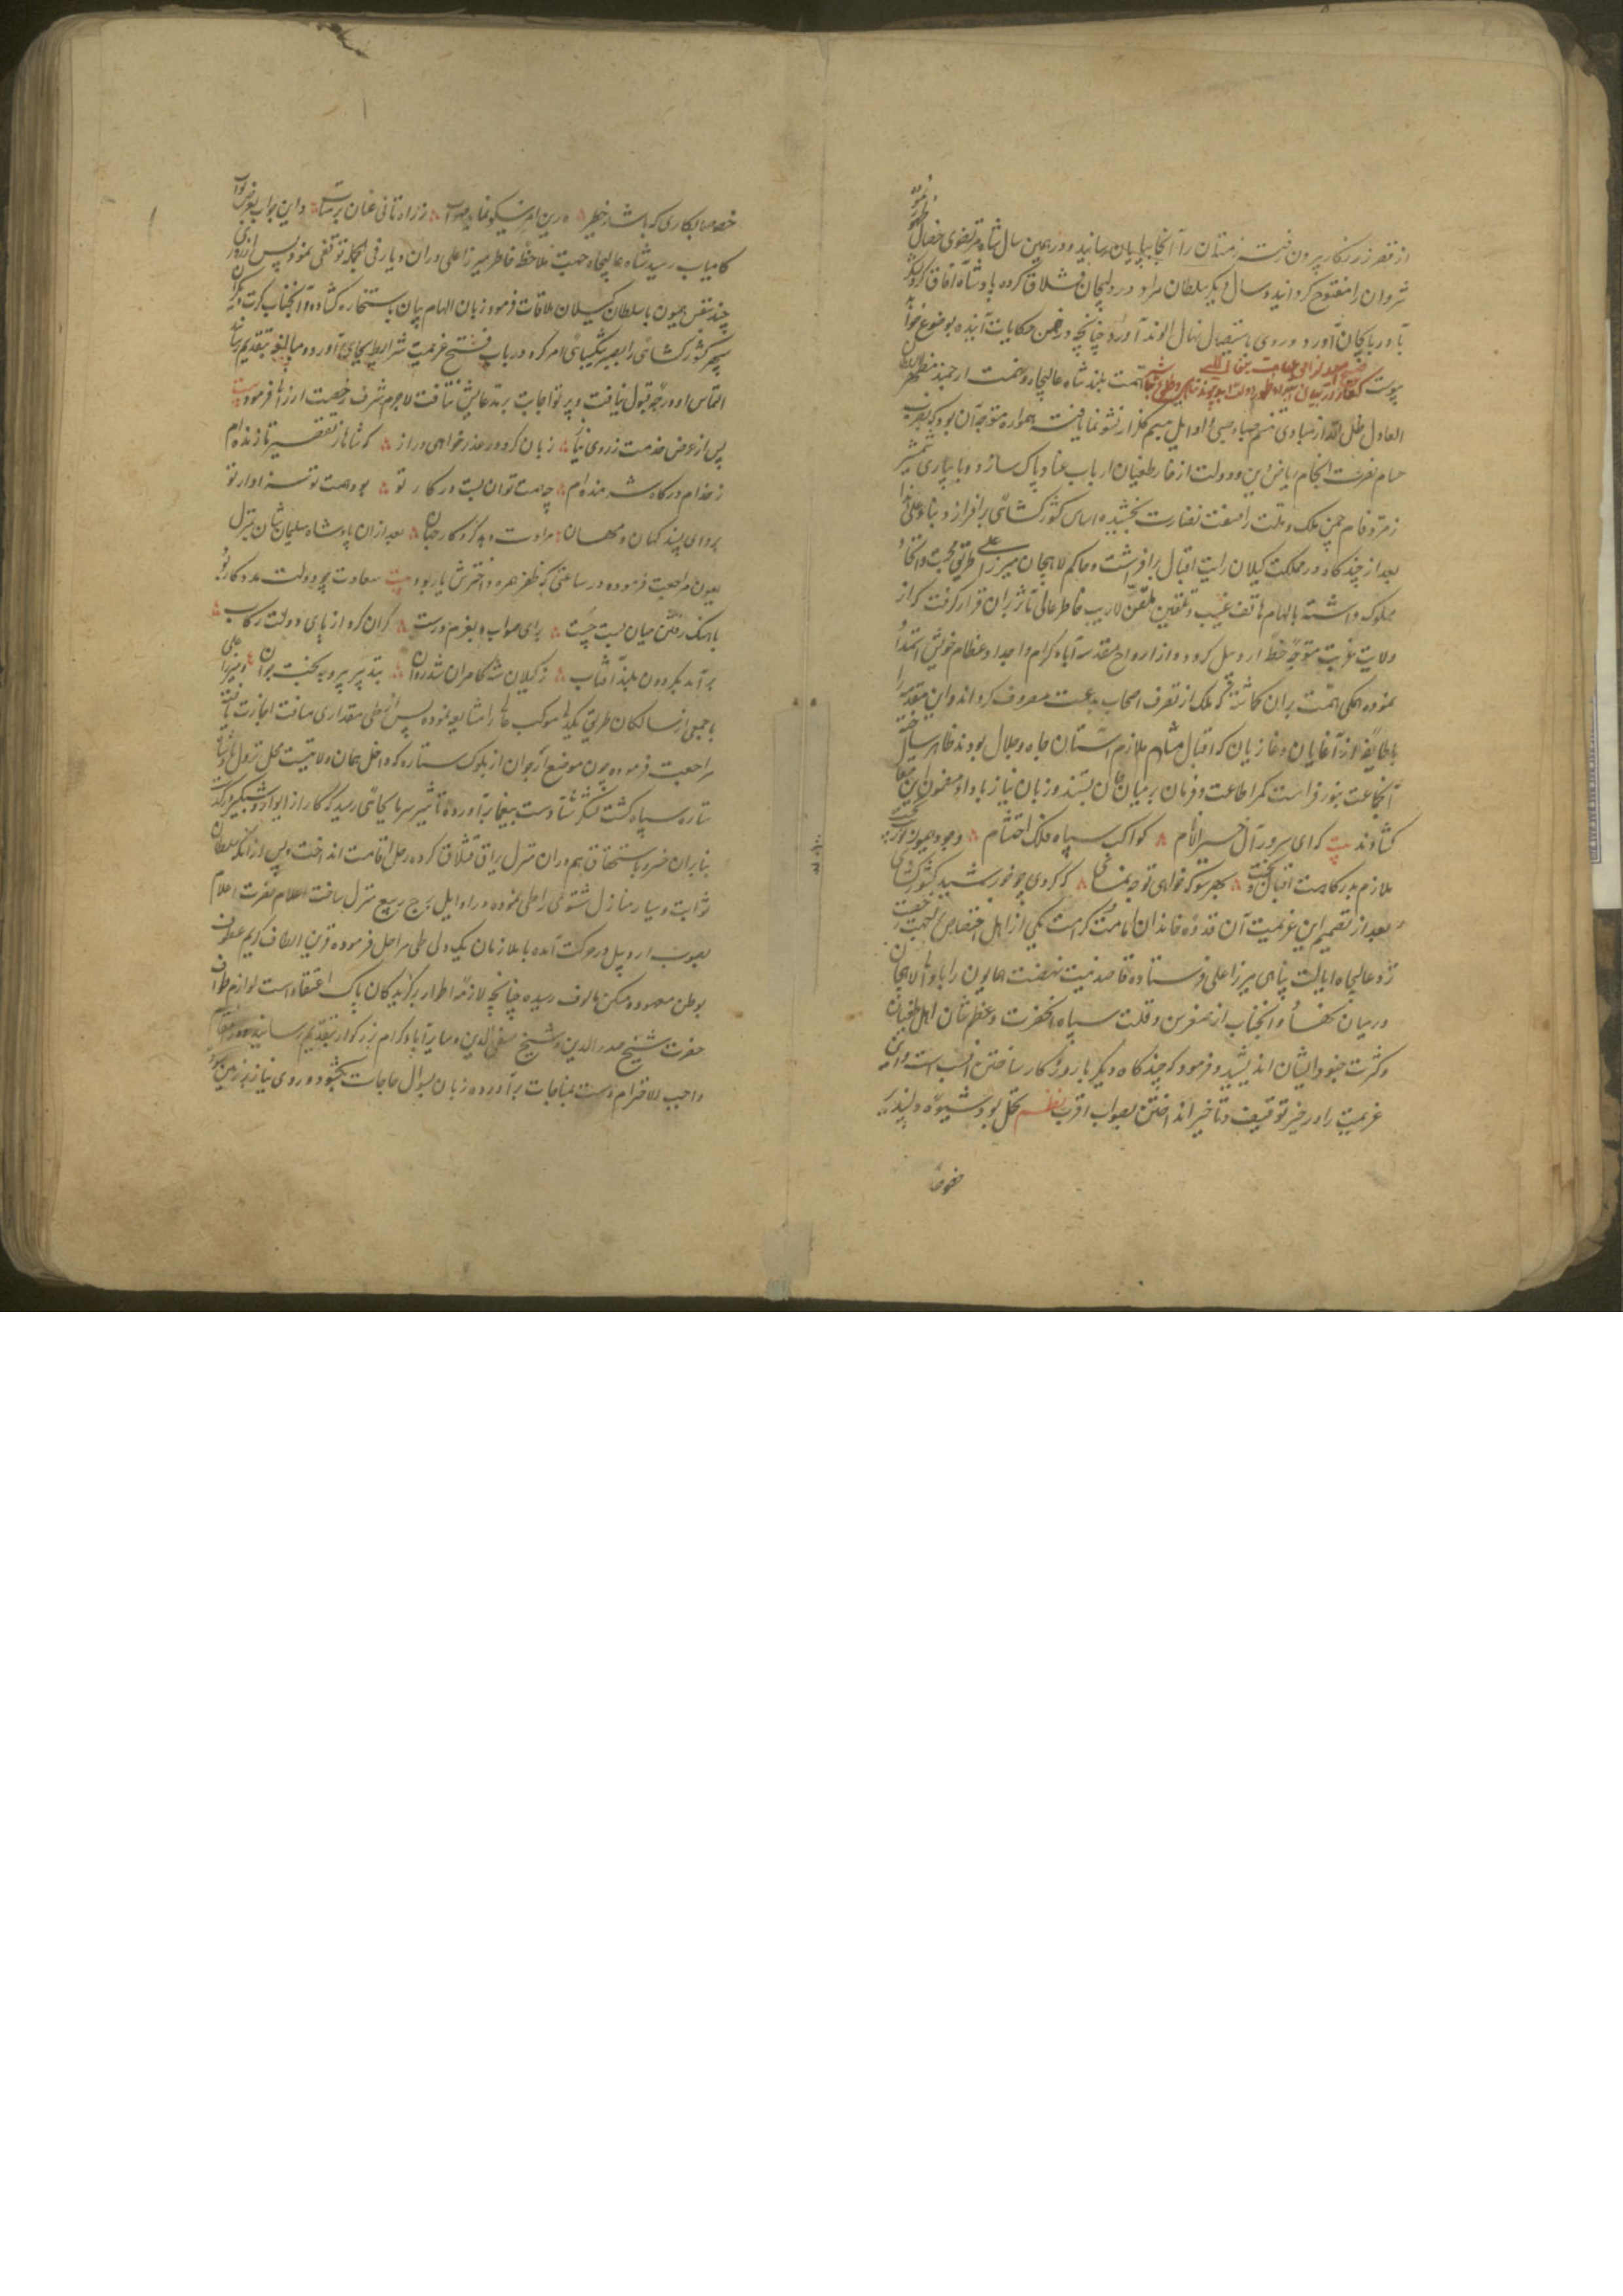 از قصر زرنگار بیرون رفت زمستان را آنجا بپایان رسانید و در همین سال شاه مرتضوی خصال
شروان را مفتوح گردانید و سال دیگر سلطان مراد در دلیجان قشلاق کرده پادشاه آفاق
بآذربایجان آورد و روی باستیصال نهال الوند آورد چنانچه در ضمن حکایات آینده بوضوع خواهد
پیوست همت بلند شاه عالیجاه و نهمت ارجمند
العادل ظل الله از مبادی تنسم صباء صبی و اوایل گلزار نشو نما یافته همواره متوجه آن بود که بضرب
حسام نصرت انجام ریاض دین و دولت از خار طغیان ارباب عناد پاک سازد و بآبیاری شمشیر
زمرد فام چمن ملک و ملت را صفت نضارت بخشیده اساس کشورگشائی برافرازد بناء علی هذا
بعد از چندگاه در مملکت گیلان رایت اقبال برافراشت و حاکم لاهجان میرزا علی طریق محبت و اتحاد
مسلوک داشته بالهام هاتف غیب و تلقین ملقن لاریب خاطر عالی مآثر بران قرار گرفت که از
ولایت غربت متوجه خطه اردبیل گردد و از ارواح مقدسه آباء کرام و اجداد عظام خویش استمداد
نموده همگی همت بران گماشته که ملک از تصرف اصحاب بدعت مصروف گرداند و این مقدمه را
با طایفه از آغایان و غازیان که اقبال مثال ملازم آستان جاه و جلال بودند ظاهر ساخت
آنجماعت بنور فراست کمر اطاعت و فرمان بر میان جان بستند و زبان نیاز باداء مضمون این مقال
گشادند بیت که ای سرور آل خیر الانام کواکب سپاه فلک احتشام وجود همیون
ملازم بدرگاهت اقبال و بخت بهر سو که خواهی توجه نمای که گردی چو خورشید کشورگشای
بعد از تصمیم این عزیمت آن قدوه خاندان امامت و کرامت یکی از اهل اختصاص
نزد عالیجاه ایالت پناهی میرزا علی فرستاده قاصد نیت نهضت همایون را با والی لاهجان
در میان نهاد و آنجناب از صغر سن و قلت سپاه آنحضرت و عظم شان اهل طغیان
و کثرت جنود ایشان اندیشید و فرمود که چندگاه دیگر با روزگار ساختن انسب است و این
عزیمت را در حیز توقیف و تاخیر انداختن بصواب اقرب نظم تحمل بود شیوه دلپذیر
خصوصا
خصوصا بکاری که باشد خطیر درین امر نیکو نماید صواب ز راه تانی عنان بر متاب و این جواب بعرض نواب
کامیاب رسید شاه عالیجاه جهت ملاحظه خاطر میرزا علی دران دیار فی الجمله توقفی نمود و پس از روزی
چند بنفس همیون با سلطان گیلان ملاقات فرمود زبان الهام بیان باستجازه گشاده و آنجناب کرت دیگر آن
سپهر کشورگشائی را بصبر و شکیبائی امر کرد و در باب فسخ عزیمت شرایط بجای آورده مبالغه بتقدیم رساند
التماس او درجه قبول نیافت و پرتو اجابت بر مدعایش نتافت لاجرم شرف رخصت ارزانی فرمود بیت
پس از عرض خدمت ز روی نیاز زبان کرد در عذرخواهی دراز که شاها ز تقصیر تا زنده ام
ز خدام درگاه شرمنده ام چه همت توان بست در کار تو بود همت تو سزاوار تو
بروای پسند کهان و مهان مرادت دهد کردگار جهان بعد از ان پادشاه سلیمان شان بمنزل
همیون مراجعت فرموده در ساعتی که ظفر همره و اخترش یار بود بیت سعادت چو دولت مددگار بود
باهنگ رفتن میان بست چست برای صواب و بعزم درست گران کرد از پای دولت رکاب
برآمد بگردون بلند آفتاب ز گیلان شه کامران شد روان بتدبیر پیر و به بخت جوان و میرزا علی
با جمعی از سالکان طریق یکدلی موکب عالی را مشایعه نموده پس از طی مقداری مسافت اجازت یافته
مراجعت فرمود و چون موضع ارجوان از بلوک ستاره که داخل همان ولایتست محل نزول
ستاره سپاه گشت لشکر شتا دست بیغما برآورده تاثیر سرما بجائی رسید که کار از ایراد و شبگیر درگذشت
بنابران خسرو باستحقاق هم دران منزل یراق قشلاق کرده رحل اقامت انداخت و پس از آنکه سلطان
ثوابت و سیار منازل شتوی را طی نموده در اوایل برج ربیع منزل ساخت اعلام نصرت اعلام
بصوب اردبیل در حرکت آمده با ملازمان یکدلی طی مراحل فرموده قرین الطاف کریم عطوف
بوطن معهود و مسکن مالوف رسیده چنانچه لازمه اطوار برگزیدگان پاک اعتقاد است لوازم طواف
حضرت شیخ صدر الدین و شیخ صفی الدین و سایر آباء کرام بزرگوار بتقدیم رسانید
واجب الاحترام دست بمناجات برآورده زبان بسوال حاجات بگشود و روی نیاز بر زمین